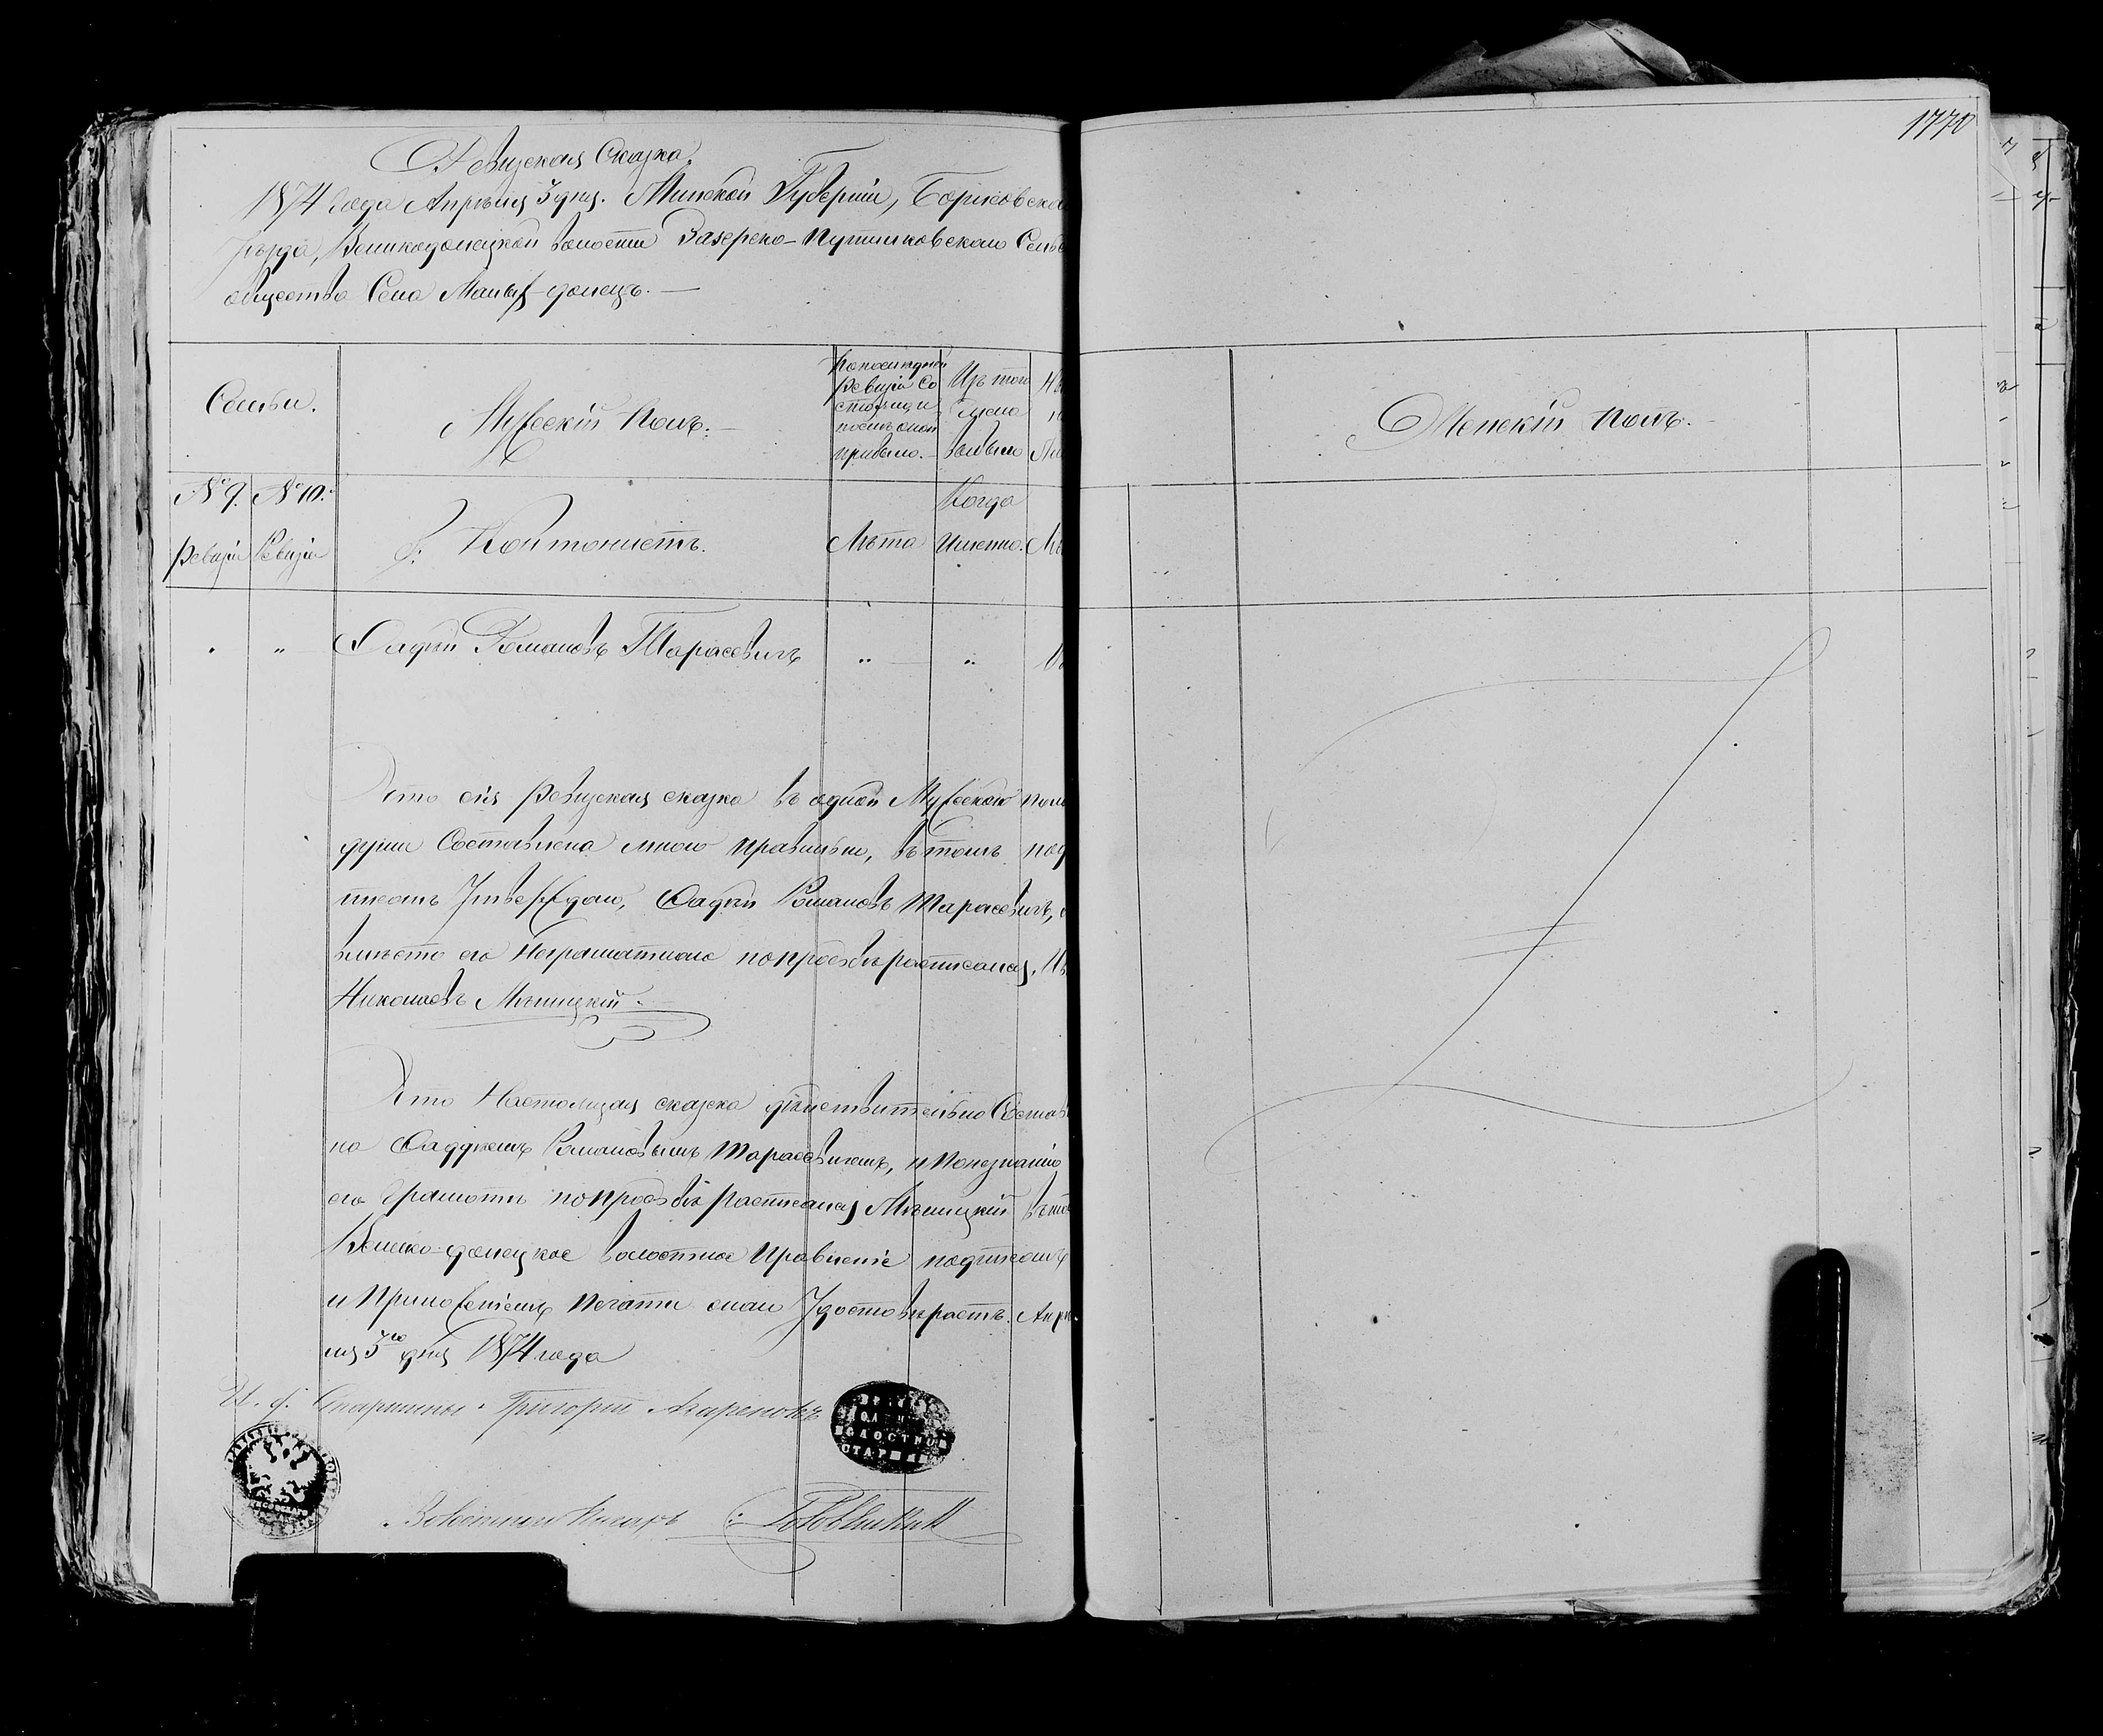 1770
Ревизская Сказка.
1874 года Апрѣля 3 дня. Минской Губерніи, Борисовска
уѣзда, Великодолецкой волости Заверско-Путилковскаго Сель
общества Села Малыхъ-долецъ. —
Семьи.
Мужескій Полъ. —
По послѣдней
Ревизіи Со
стояло и
послѣ оной
прибыло. —
Изъ того
числа
выбыло
Женскій полъ. —
№ 9. № 10.
Ревизіи Ревизіи
Кантонистъ.
Лѣта
Когда
Именно.
" " Фадѣй Романовъ Тарасевичъ " — "
Что сія Ревизская сказка въ одной Мужескаго пола
души Составлена мною правильно, въ томъ под
писомъ Утверждаю, Фадѣй Романовъ Тарасевичъ,
вмѣсто его Неграмотнаго по прозьбѣ росписался,
Николаевъ Мѣницкій. —
Что Настоящая сказка дѣйствительно Состав
на Фаддѣемъ Романовымъ Тарасевичемъ, и По незнанію
его Грамоты по прозьбѣ Росписался Мѣницкій въ то
Велико-долецкое волостное Правленіе подписомъ
и Приложеніемъ Печати своей Удостовѣряетъ. Апрѣ
ля 3го дня 1874 года
И. д. Старшины Григорій Азаренокъ
ВОЛОСТНОЙ
СТАРШ
Волостной Писарь